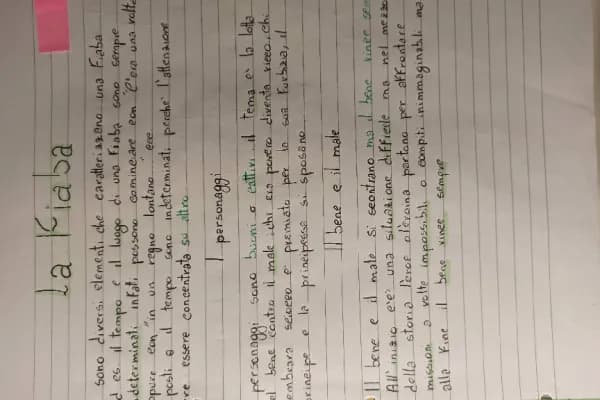 La Fiaba
sono diversi elementi che caratterizzano una Fiaba
d es il tempo e il luogo di una Fiaba sono sempre
determinati infati, possono cominciare con "C'era una volta
ppure con "in un regno lontano" ecc
posti o il tempo sono indeterminati perché l'attenzione
re essere concentrata su altro
I personaggi
personaggi sono buoni o cattivi il tema è la lotta
el bene contro il male, chi era povero diventa ricco, chi
embrava sciocco è premiato per la sua furbizia, il
principe e la principessa si sposano
Il bene e il male
Il bene e il male si scontrano ma il bene vince sem
All'inizio c'è una situazione difficile ma nel mezzo
della storia l'eroe o l'eroina partono per affrontare
missioni a volte impossibili o compiti inimmaginabili ma
alla fine il bene vince sempre